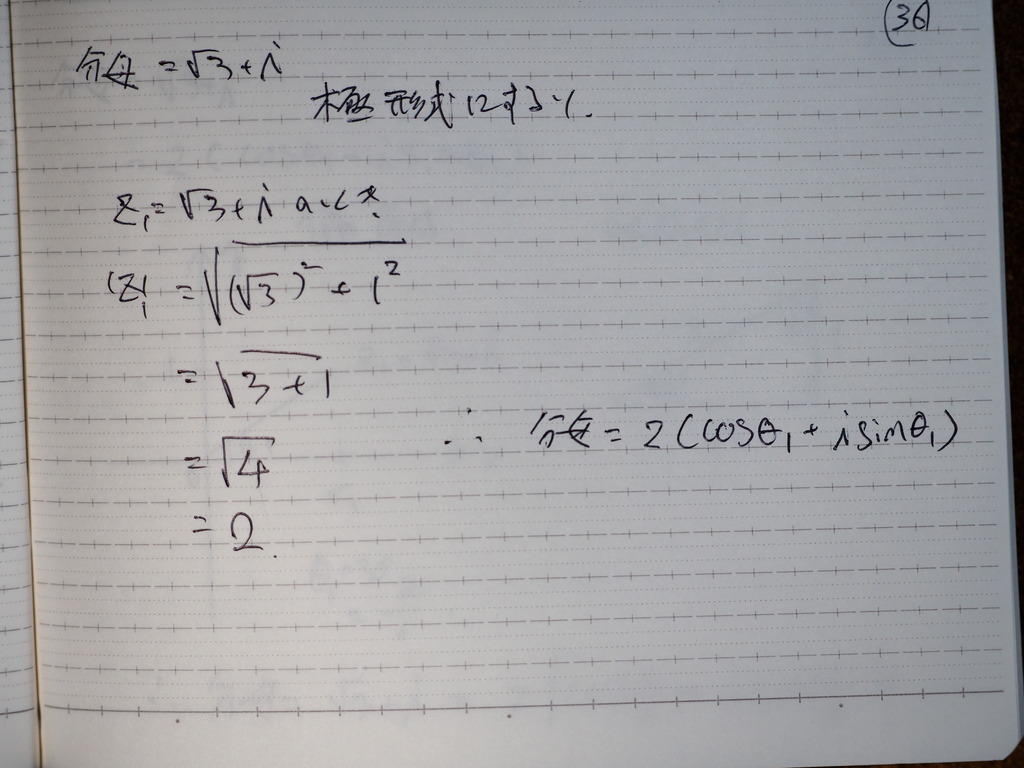 (36)
分母 = √3 + i
極形式にすると.
Z₁ = √3 + i のとき.
|Z₁| = √((√3)² + 1²)
= √(3 + 1)
= √4
= 2.
∴ 分母 = 2 (cosθ₁ + i sinθ₁)